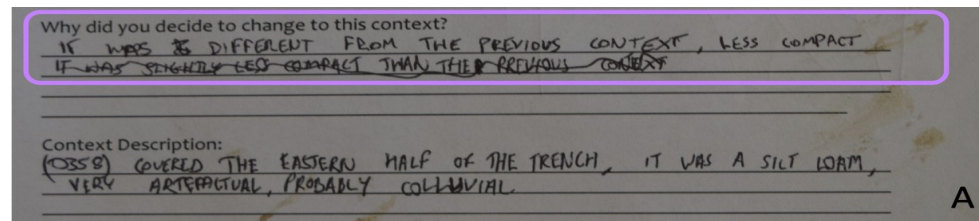 Why did you decide to change to this context?
IT WAS DIFFERENT FROM THE PREVIOUS CONTEXT, LESS COMPACT
IT WAS SLIGHTLY LESS COMPACT THAN THE PREVIOUS CONTEXT
Context Description:
(0358) COVERED THE EASTERN HALF OF THE TRENCH, IT WAS A SILT LOAM,
VERY ARTEFACTUAL, PROBABLY COLLUVIAL
A